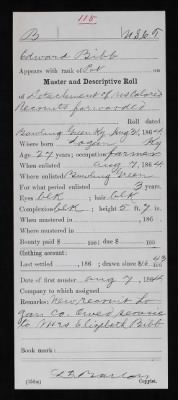 118
B U.S.C.T.
Edward Bibb
Appears with rank of Pvt on
Muster and Descriptive Roll
a Detachment of U.S. Colored
Recruits forwarded
Roll dated
Bowling Green Ky Aug 31, 1864
Where born Logan Ky
Age 27 years; occupation farmer
When enlisted Aug 7, 1864
Where enlisted Bowling Green
For what period enlisted 3 years.
Eyes blk ; hair blk
Complexion blk ; height 5 ft. 7 in.
When mustered in , 186
Where mustered in
Bounty paid $ 100; due $ 100
Clothing account:
Last settled , 186 ; drawn since $
Date of first muster Aug 7, 1864
Company to which assigned
Remarks: New recruit Lo
gan co. Owed service
to Mrs Elizabeth Bibb
Book mark:
Copyist.